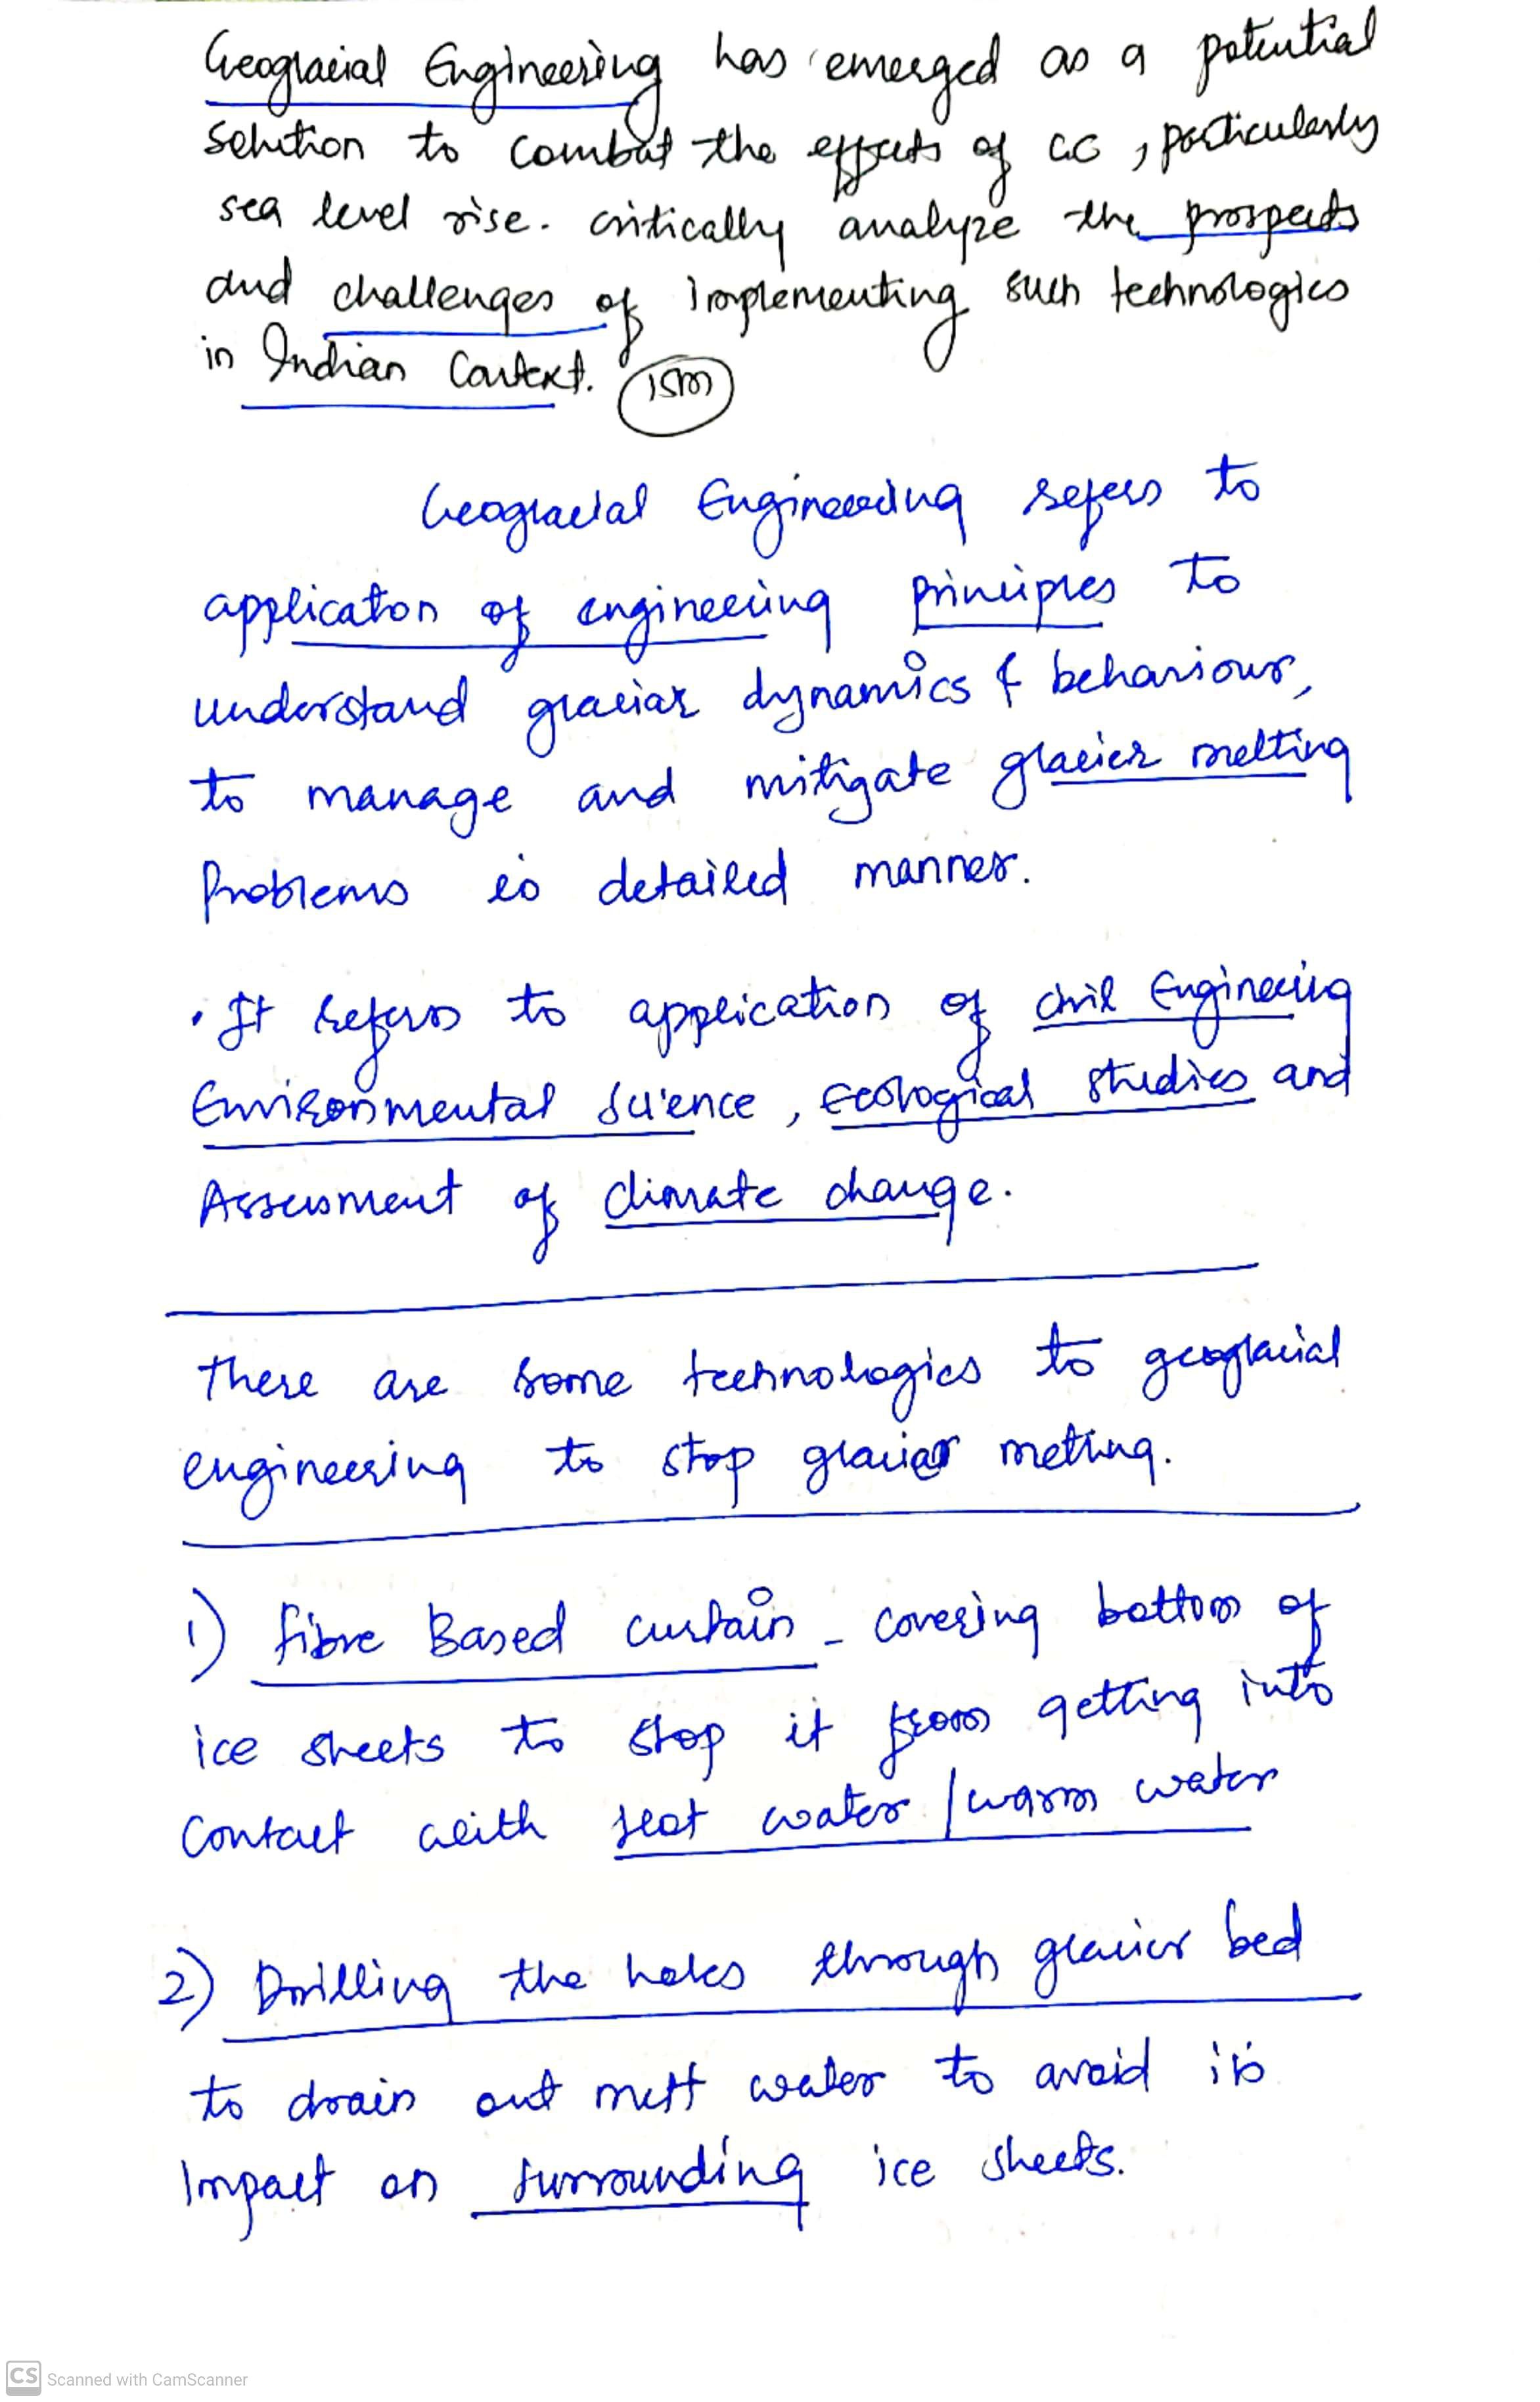 Geoglacial Engineering has emerged as a potential
solution to combat the effects of CC, particularly
sea level rise. critically analyze the prospects
and challenges of implementing such technologies
in Indian Context. 15m
Geoglacial Engineering refers to
applicaton of engineering principles to
understand glaciar dynamics & behaviour,
to manage and mitigate glacier melting
Problems in detailed manner.
• It refers to application of civil Engineering
Environmental Science, Ecological studies and
Assessment of climate change.
There are some technologies to geoglacial
engineering to stop glaciar melting.
1) fibre Based curtain - covering bottom of
ice sheets to stop it from getting into
contact with seat water / warm water
2) Drilling the holes through glacier bed
to drain out melt water to avoid its
Impact on surrounding ice sheets.
CS Scanned with CamScanner